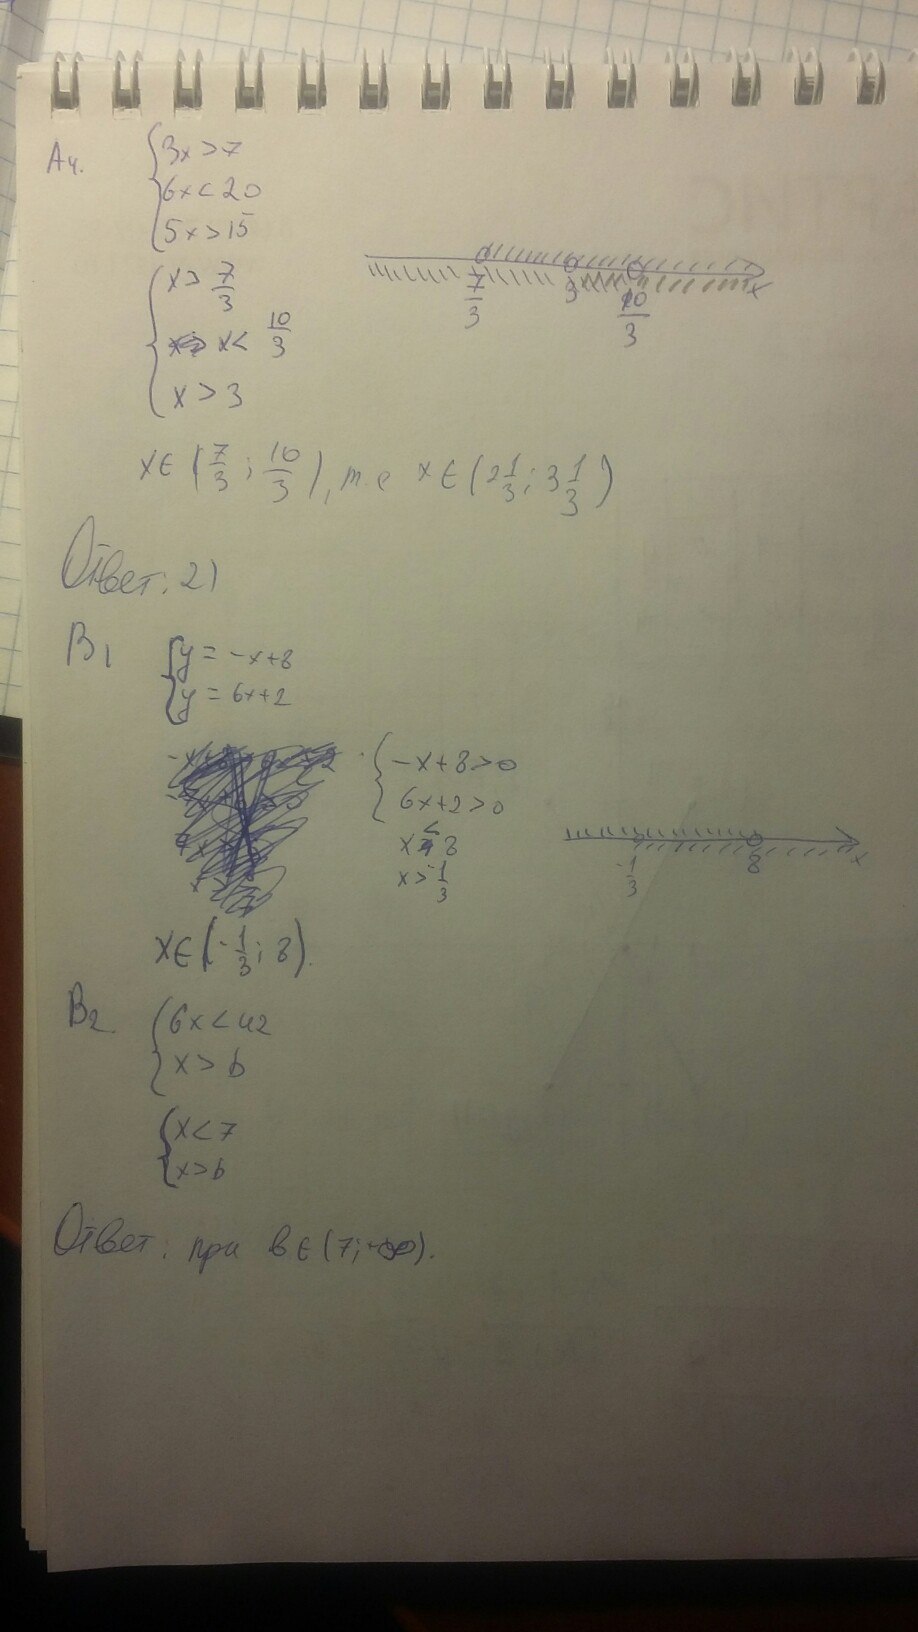 А4.
{3x > 7
{6x < 20
{5x > 15
{x > 7/3
{x < 10/3
{x > 3
7/3 3 10/3 x
x∈(7/3; 10/3), т.е x∈(2 1/3; 3 1/3)
Ответ: 2)
В1
{y = -x+8
{y = 6x+2
{-x+8>0
{6x+2>0
x < 8
x > -1/3
-1/3 8 x
x∈(-1/3; 8).
В2
{6x < 42
{x > b
{x < 7
{x > b
Ответ: при b∈(7; +∞).